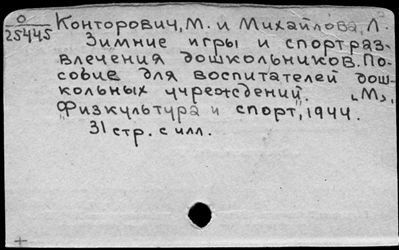 О
25445
Конторович, М. и Михайлова, Л.
Зимние игры и спортраз-
влечения дошкольников. По-
собие для воспитателей дош-
кольных учреждений. „М„,
„Физкультура и спорт", 1944.
31 стр. с илл.